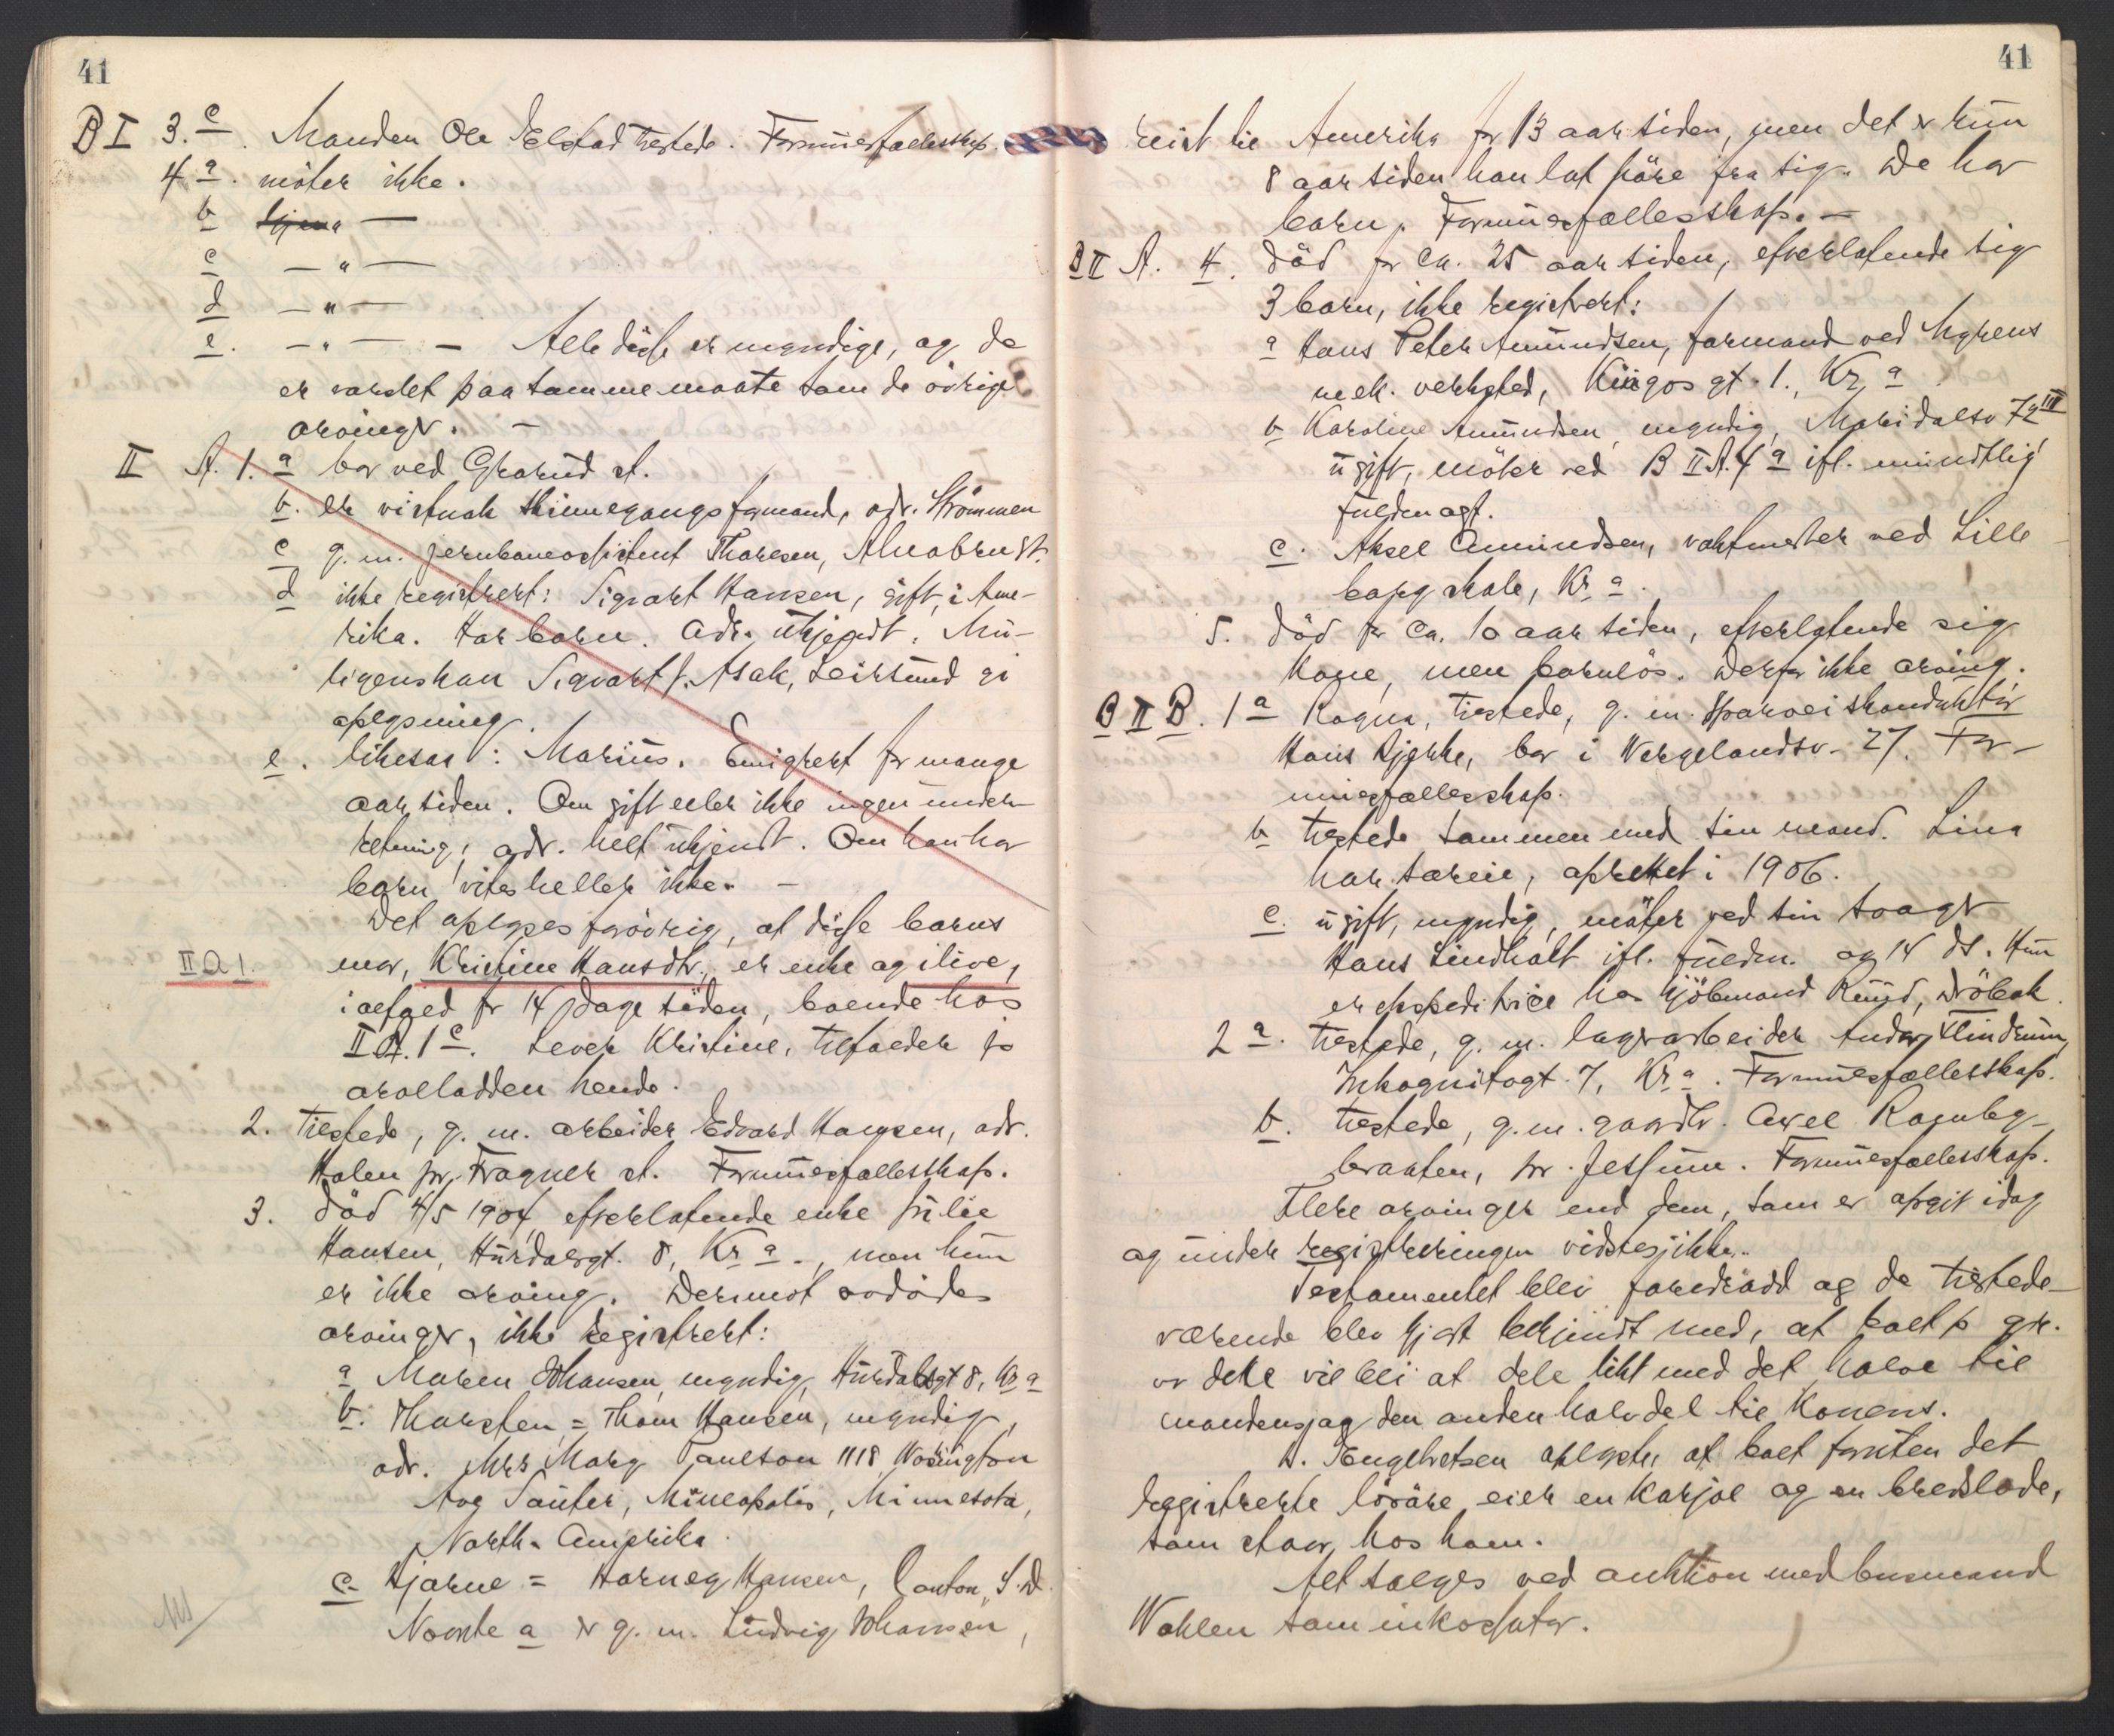 41
B I 3. c. Manden Ole Elstad tilstede. Formuesfællesskap.
4 a. möter ikke.
b — " —
c — " —
d — " —
e. — " — — Alle disse er myndige, og de
er varslet paa samme maate som de övrige
arvinger. —
II A. 1. a bor ved Grorud st.
b. er visstnok skinnegangsformand, adr. Strömmen
c g. m. jernbaneassistent Thoresen, Alnabru st.
d ikke registrert: Sigvart Hansen, gift, i Ame-
rika. Har barn. Adr. ukjendt. Mu-
ligens kan Sigvart J. Asak, Leirsund gi
oplysning.
e. likesaa: Marius. Emigrert for mange
aar siden. Om gift eller ikke ingen under-
retning; adr. helt ukjendt. Om han har
barn vites heller ikke. —
Det oplyses forövrig, at disse barns
II A 1. mor, Kristine Hansdtr., er enke og ilive,
ialfald for 14 dage siden, boende hos
II A. 1 c. Lever Kristine, tilfalder jo
arvelodden hende.
2. tilstede, g. m. arbeider Edvard Hansen, adr.
Holen pr. Frogner st. Formuesfællesskap.
3. död 4/5 1904, efterlatende enke Julie
Hansen, Hurdalsgt. 8, Kr a., men hun
er ikke arving. Derimot avdödes
arvinger, ikke registrert:
a Maren Johansen, myndig, Hurdalsgt 8, Kr a
b. Thorsten = Thom Hansen, myndig,
adr. Mrs Mary Paulson 1118 Wosington
Avg Sauter, Mineapolis, Minnesota,
North-Amerika.
c. Hjarne = Harneg Hansen, Canton, S. D.
Nævnte a er g. m. Ludvig Johansen,
41
reist til Amerika for 13 aar siden, men det er kun
8 aar siden han lot höre fra sig. De har
barn. Formuesfællesskap. —
B II A. 4. död for ca. 25 aar siden, efterlatende sig
3 barn, ikke registrert:
a Hans Peter Amundsen, formand ved Myrens
mek. verksted, Kingos gt. 1., Kr. a
b Karoline Amundsen, myndig, Maridalsv 79 III
ugift, möter ved B II A. 4 a ifl. mundtlig
fuldmagt.
c. Aksel Amundsen, vaktmester ved Lille
borg skole, Kr. a.
5. död for ca. 10 aar siden, efterlatende sig
kone, men barnlös. Derfor ikke arving.
B II B. 1 a Ragna, tilstede, g. m. sporveiskonduktör
Hans Kjerke, bor i Wergelandsv. 27. For-
muesfællesskap.
b tilstede sammen med sin mand. Lina
har særeie, oprettet i 1906.
c. ugift, myndig, möter ved sin svoger
Hans Lindholt ifl. fuldm. og 14 ds. Hun
er ekspeditrice hos kjöbmand Ruud, Dröbak.
2 a. tilstede, g. m. lagerarbeider Flindrum,
Inkognitogt. 7, Kr. a. Formuesfællesskap.
b. tilstede, g. m. gaardbr. Axel
braaten, pr. Jessum. Formuesfællesskap.
Flere arvinger end dem, som er opgit idag
og under registreringen vidstes ikke.
Testamentet blev foredradd og de tilstede-
værende blev gjort bekjendt med, at boet p gr.
av dette vil bli at dele likt med det halve til
mandens og den anden halvdel til Konens.
A. Engebretsen oplyste, at boet foruten det
registrerte lösöre eier en karjol og en bredslæde,
som staar hos ham.
Alt sælges ved auktion med bermand
Wahlen som inkassator.